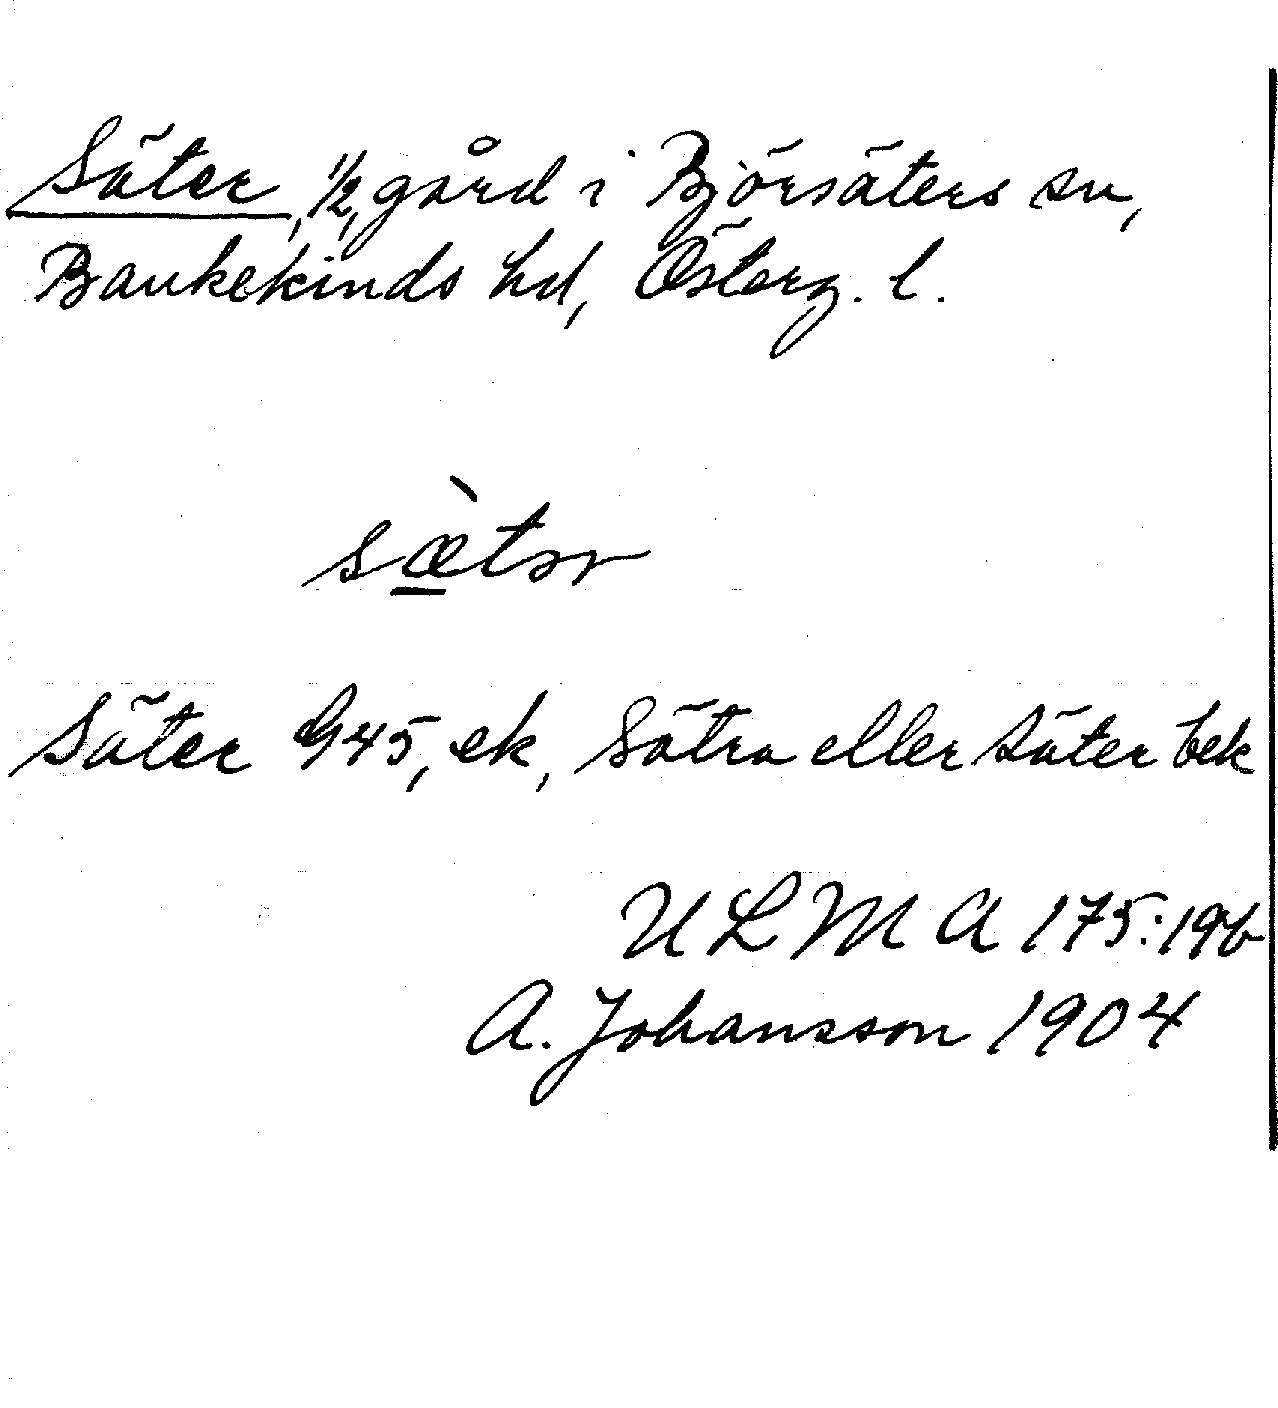 Säter, 1/2, gård i Björsäters sn,
Bankekinds hd, Österg. l.
sæ̀tər
Säter G45, ek, Sätra eller Säter bek
ULMA 175:19b
A. Johansson 1904